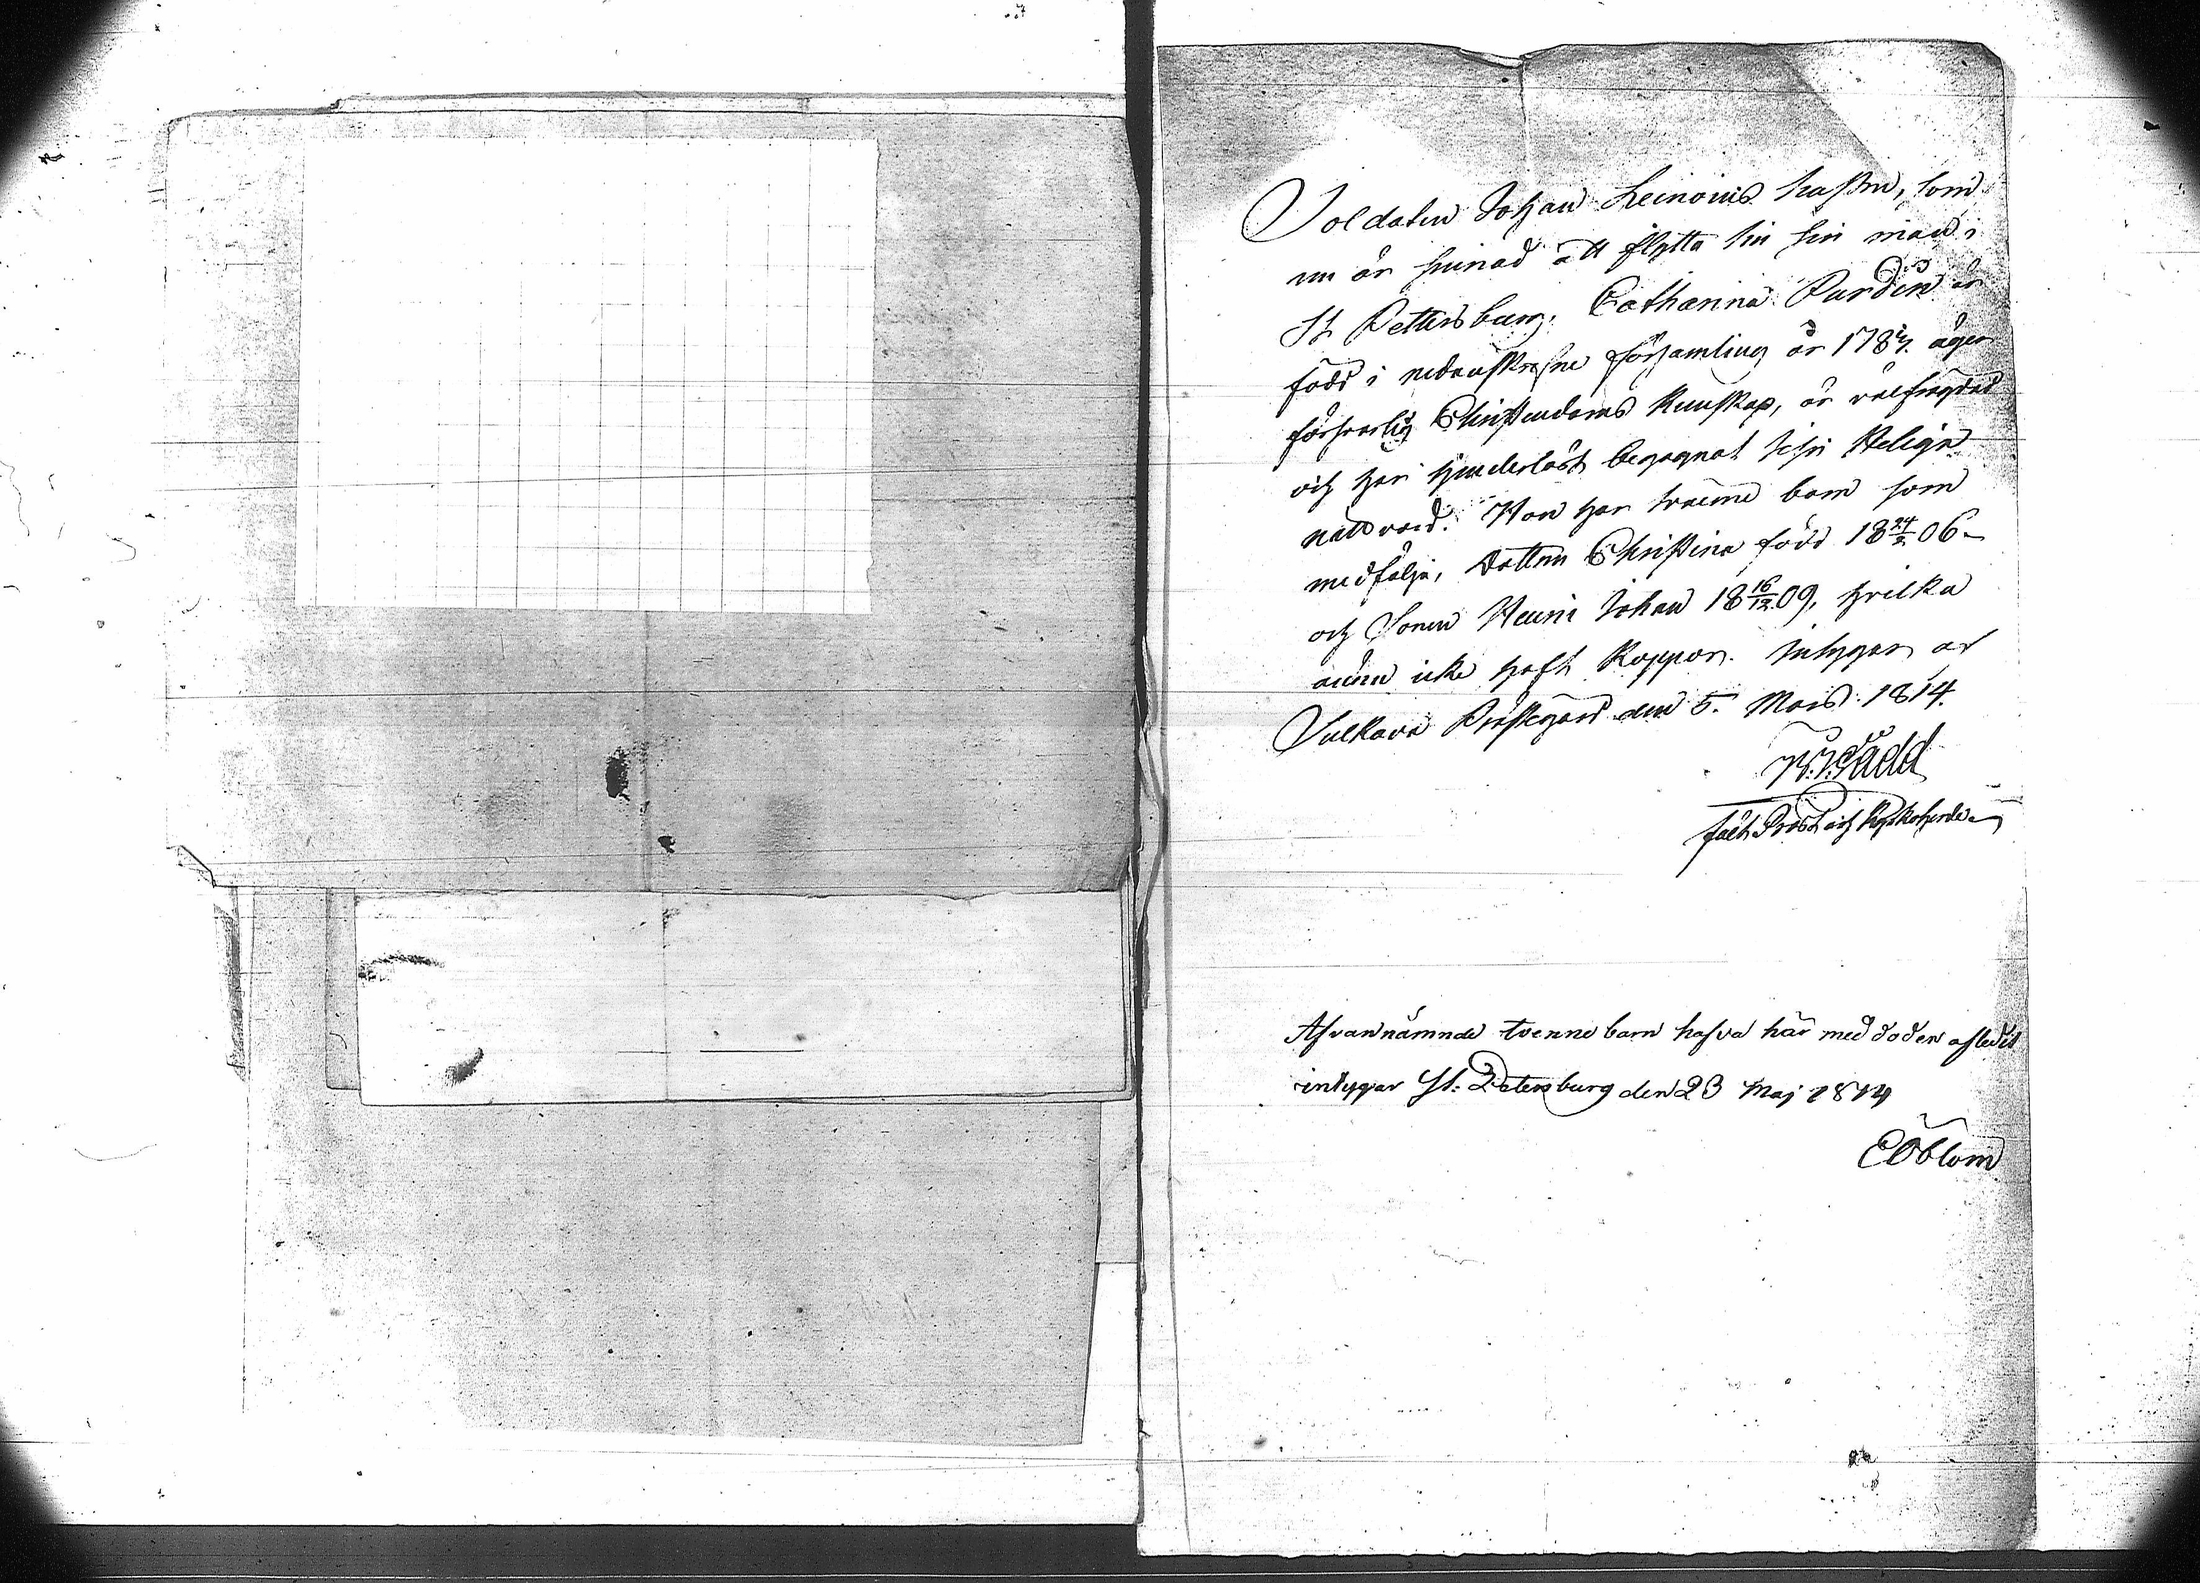 Soldaten Johan Leinoins hustru, som
nu är sinnad att flytta till sin man i
St Pettersburg, Catharina Pardin är
född i nedanskrefne församling år 178 äger
försvarlig Christendoms kunskap, är välfrägdad
och har hinderlöst begagnat H: hri Religion
nattvard. Hon har tvänne barn som
medfölja, Dottren Christina född 18 24/2 06
och Sonen Henric Johan 18 16/12 09, hvilka
ännu icke haft Koppor. intygar
Sulkava Prästegård den 5. Mars 1814.
Gadd
fält Prost och Kyrkoherde
Afvannämnde tvenne barn hafva här med döden afledit
intygar St: Petersburg den 23 Maj 1814
EÖblom